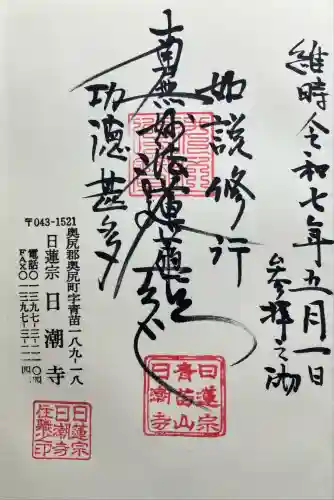 維時令和七年五月一日
参拝之砌
如説修行
南無妙法蓮華経
功徳甚多
〒043-1521
奥尻郡奥尻町字青苗一八九-一八
日蓮宗 日潮寺
電話〇一三九七-三-
FAX〇一三九七-三-
日蓮宗
青苗山
日潮寺
日蓮宗
日潮寺
住職之印